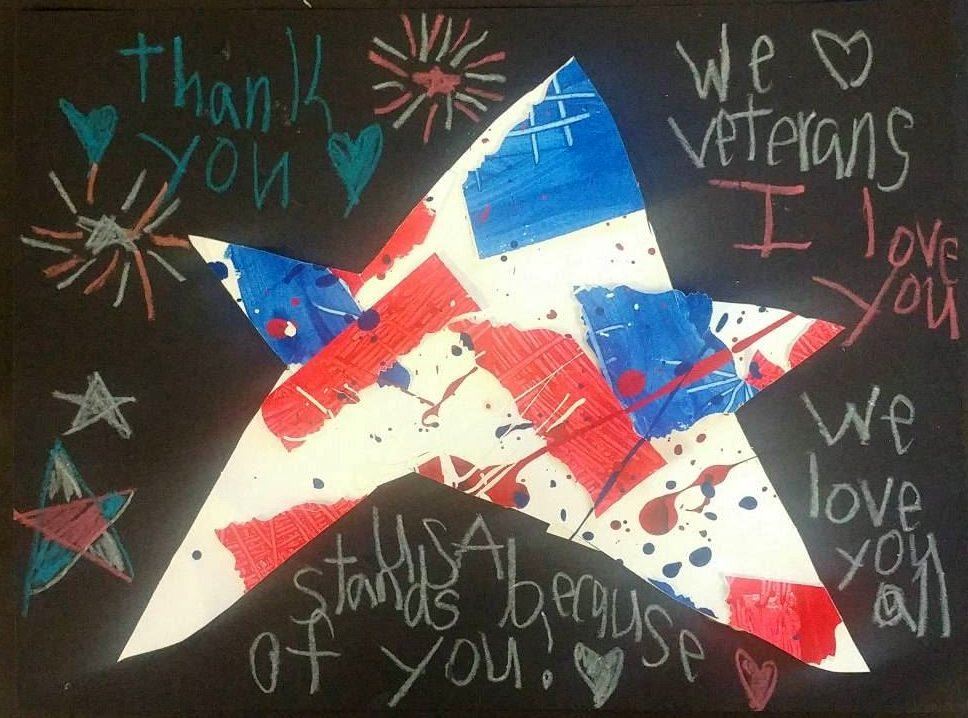 Thank
you
We ♡
veterans
I love
you
We
love
you
all
USA
stands because
of you!